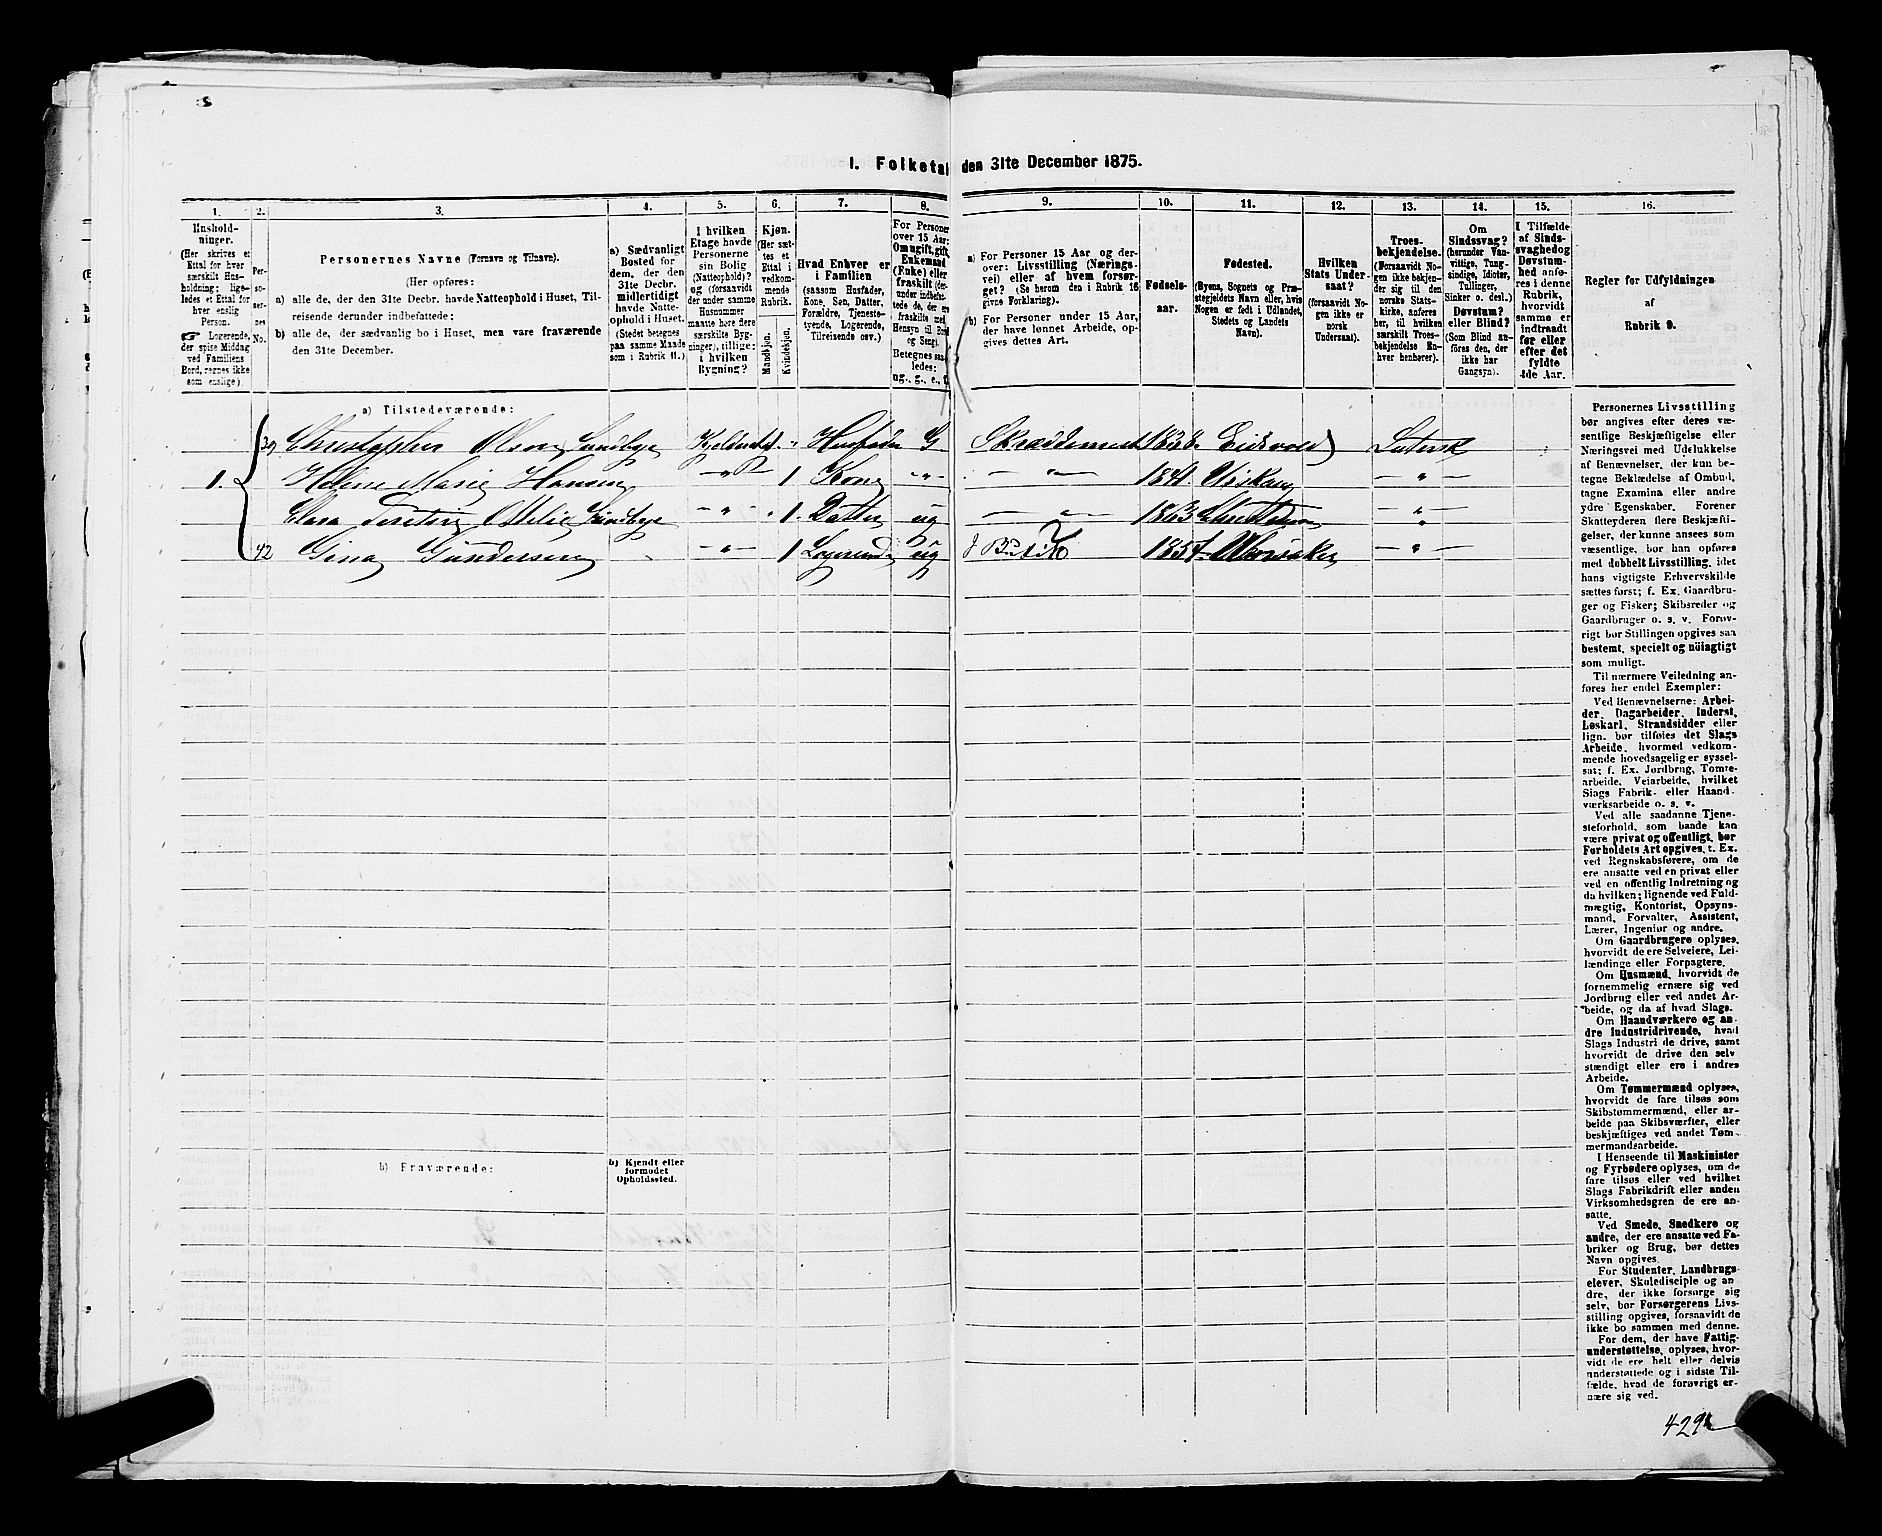 I. Folketal den 31te December 1875.
1.
Hushold-
ninger.
(Her skrives et
Ettal for hver
særskilt Hus-
holdning; lige-
ledes et Ettal for
hver enslig
Person.
☞ Logerende,
der spise Middag
ved Familiens
Bord, regnes ikke
som enslige).
2.
Per-
so-
ner-
nes
No.
3.
Personernes Navne (Fornavn og Tilnavn).
(Her opføres:
a) alle de, der den 31te Decbr. havde Natteophold i Huset, Til-
reisende derunder indbefattede;
b) alle de, der sædvanlig bo i Huset, men vare fraværende
den 31te December.
4.
a) Sædvanligt
Bosted for
dem, der den
31te Decbr.
midlertidigt
havde Natte-
ophold i Huset.
(Stedet betegnes
paa samme Maade
som i Rubrik 11.)
5.
I hvilken
Etage havde
Personerne
sin Bolig
(Natteophold)?
og (forsaavidt
der under samme
Husnummer
maatte høre flere
særskilte Byg-
ninger), tillige:
i hvilken
Bygning?
6.
Kjøn.
(Her sæt-
tes et
Ettal i
vedkom-
mende
Rubrik.
Mandkjøn.
Kvindekjøn.
7.
Hvad Enhver er
i Familien
(saasom Husfader,
Kone, Søn, Datter,
Forældre, Tjeneste-
tyende, Logerende,
Tilreisende osv.)
8.
For Personer
over 15 Aar:
Om ugift, gift,
Enkemand
(Enke) eller
fraskilt
Betegnes saa-
ledes:
ug., g., e., f.
9.
a) For Personer 15 Aar og der-
over: Livsstilling (Nærings-
vei) eller af hvem forsør-
get? (Se herom den i Rubrik 16
givne Forklaring).
b) For Personer under 15 Aar,
der have lønnet Arbeide, op-
gives dettes Art.
10.
Fødsels-
aar.
11.
Fødested.
(Byens, Sognets og Præ-
stegjeldets Navn eller, hvis
Nogen er født i Udlandet,
Stedets og Landets
Navn).
12.
Hvilken
Stats Under-
saat?
(forsaavidt No-
gen ikke er
norsk
Undersaat).
13.
Troes-
bekjendelse.
(Forsaavidt No-
gen ikke bekjen-
der sig til den
norske Stats-
kirke, anføres
her, til hvilken
særskilt Troes-
bekjendelse En-
hver henhører).
14.
Om
Sindssvag?
(herunder Van-
vittige, Tung-
sindige, Idioter,
Tullinger,
Sinker o. desl.)
Døvstum?
eller Blind?
(Som Blind an-
føres den, der
ikke har
Gangsyn).
15.
I Tilfælde
af Sinds-
svaghed og
Døvstum-
hed anfø-
res i denne
Rubrik,
hvorvidt
samme er
indtraadt
før eller
efter det
fyldte
4de Aar.
16.
Regler for Udfyldningen
af
Rubrik 9.
a) Tilstedeværende:
39 Christopher Olsen Sundbye Husfader G Skræddermester 1838 Eidsvold Luthersk
1. Helene Marie Hansen 1 Kone 1841
Sundbye 1. Datter ug 1863
42 Gina Gundersen 1 Logerende ug Butik 1857
b) Fraværende:
b) Kjendt eller
formodet
Opholdssted.
Personernes Livsstilling
bør angives efter deres væ-
sentlige Beskjæftigelse eller
Næringsvei med Udelukkelse
af Benævnelser, der kun be-
tegne Beklædelse af Ombud,
tagne Examina eller andre
ydre Egenskaber. Forener
Skatteyderen flere Beskjæfti-
gelser, der kunne ansees som
væsentlige, bør han opføres
med dobbelt Livsstilling, idet
hans vigtigste Erhvervskilde
sættes først; f. Ex. Gaardbru-
ger og Fisker; Skibsreder og
Gaardbruger o. s. v. Forøv-
rigt bør Stillingen opgives saa
bestemt, specielt og nøiagtigt
som muligt.
Til nærmere Veiledning an-
føres her endel Exempler:
Ved Benævnelserne: Arbei-
der, Dagarbeider, Inderst,
Løskarl, Strandsidder eller
lign. bør tilføies det Slags
Arbeide, hvormed vedkom-
mende hovedsagelig er syssel-
sat; f. Ex. Jordbrug, Tomte-
arbeide, Veiarbeide, hvilket
Slags Fabrik- eller Haand-
værksarbeide o. s. v.
Ved alle saadanne Tjene-
steforhold, som baade kan
være privat og offentligt, bør
Forholdets Art opgives, t. Ex.
ved Regnskabsførere, om de
ere ansatte ved en privat eller
ved en offentlig Indretning og
da hvilken; lignende ved Fuld-
mægtig, Kontorist, Opsyns-
mand, Forvalter, Assistent,
Lærer, Ingeniør og andre.
Om Gaardbrugere oplyses,
hvorvidt de ere Selveiere, Lei-
lændinge eller Forpagtere.
Om Husmænd, hvorvidt de
fornemmelig ernære sig ved
Jordbrug eller ved andet Ar-
beide, og da af hvad Slags.
Om Haandværkere og an-
dre Industridrivende, hvad
Slags Industri de drive, samt
hvorvidt de drive den selv-
stændigt eller ere i andres
Arbeide.
Om Tømmermænd oplyses,
hvorvidt de fare tilsøs som
Skibstømmermænd, eller ar-
beide paa Skibsværfter, eller
beskjæftiges ved andet Tøm-
mermandsarbeide.
I Henseende til Maskinister
og Fyrbødere oplyses, om de
fare tilsøs eller ved hvilket
Slags Fabrikdrift eller anden
Virksomhedsgren de ere an-
satte.
Ved Smede, Snedkere og
andre, der ere ansatte ved Fa-
briker og Brug, bør dettes
Navn opgives.
For Studenter, Landbrugs-
elever, Skoledisciple og an-
dre, der ikke forsørge sig
selv, bør Forsørgerens Livs-
stilling opgives, forsaavidt de
ikke bo sammen med denne.
For dem, der have Fattig-
understøttelse, oplyses, hvor-
vidt de ere helt eller delvis
understøttede og i sidste Til-
fælde, hvad de forøvrigt er-
nære sig ved.